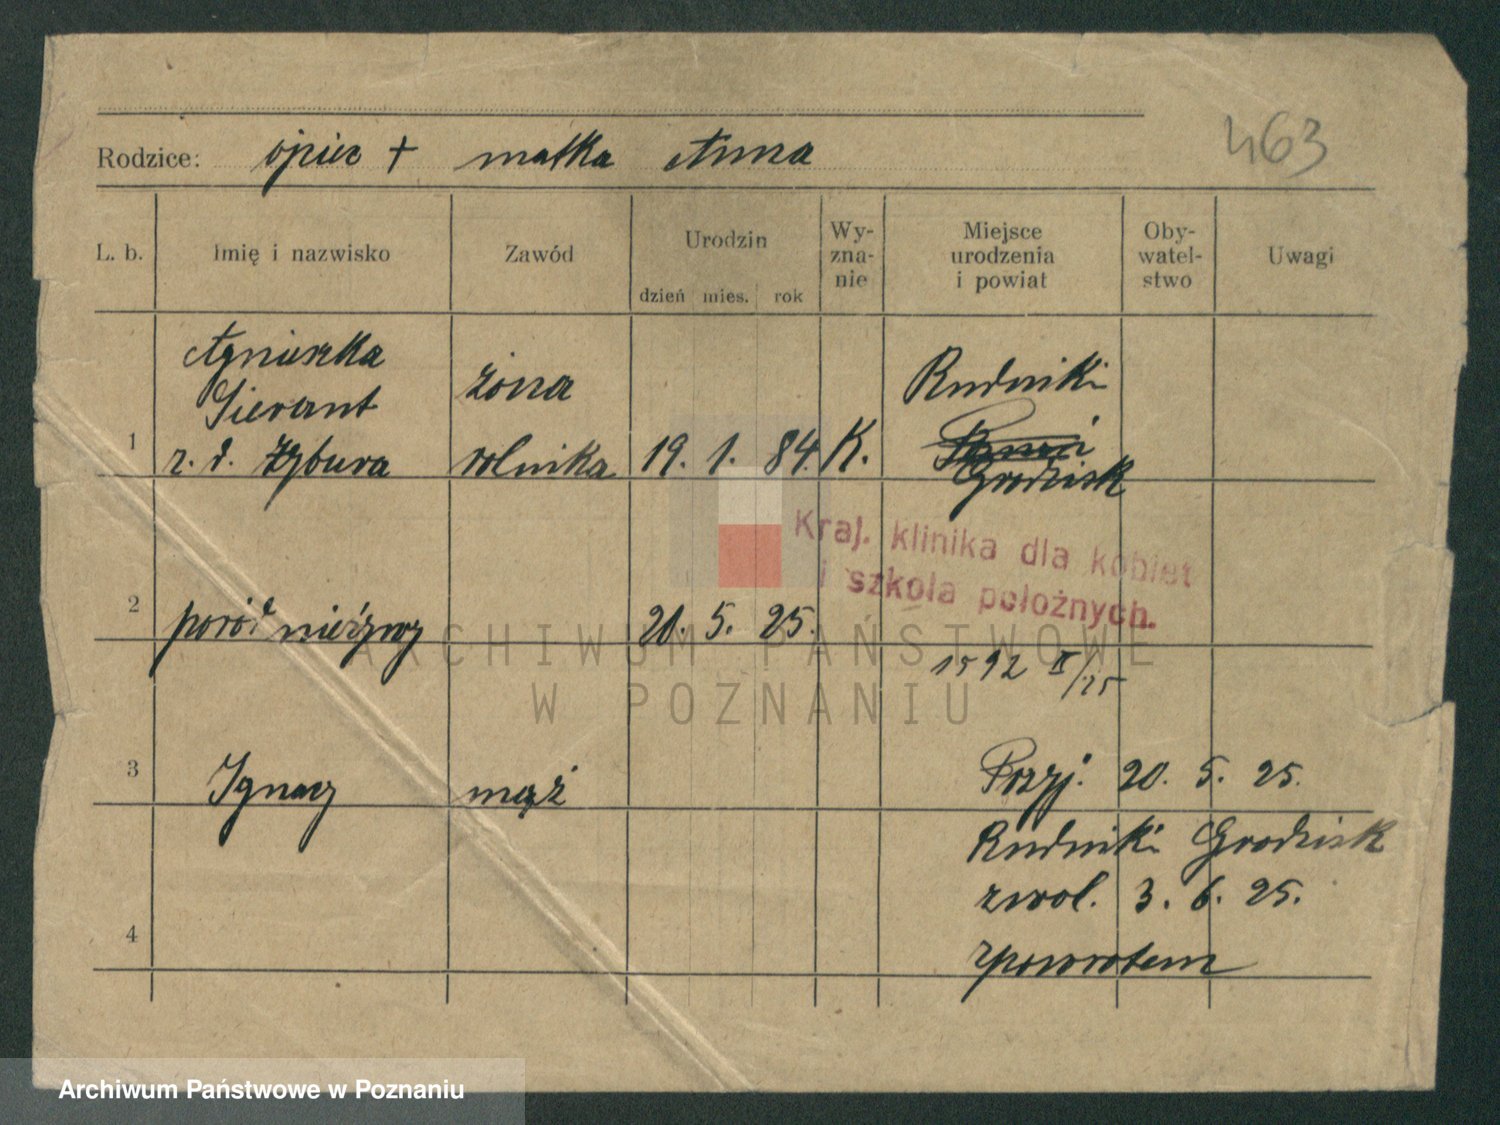 463
Rodzice: ojciec + matka Anna
L. b. Imię i nazwisko Zawód Urodzin dzień mies. rok Wy-zna-nie Miejsce urodzenia i powiat Oby-watel-stwo Uwagi
Agnieszka
Sierant żona Rudniki
1 z. d. Żybura rolnika 19. 1. 84. K.
Grodzisk
Kraj. klinika dla kobiet
i szkoła położnych.
2 poród nieżywy 20. 5. 25.
1592 II/25
3 Ignacy mąż Przyj. 20. 5. 25.
Rudniki Grodzisk
zwol. 3. 6. 25.
4 zpowrotem
ARCHIWUM PAŃSTWOWE
W POZNANIU
Archiwum Państwowe w Poznaniu